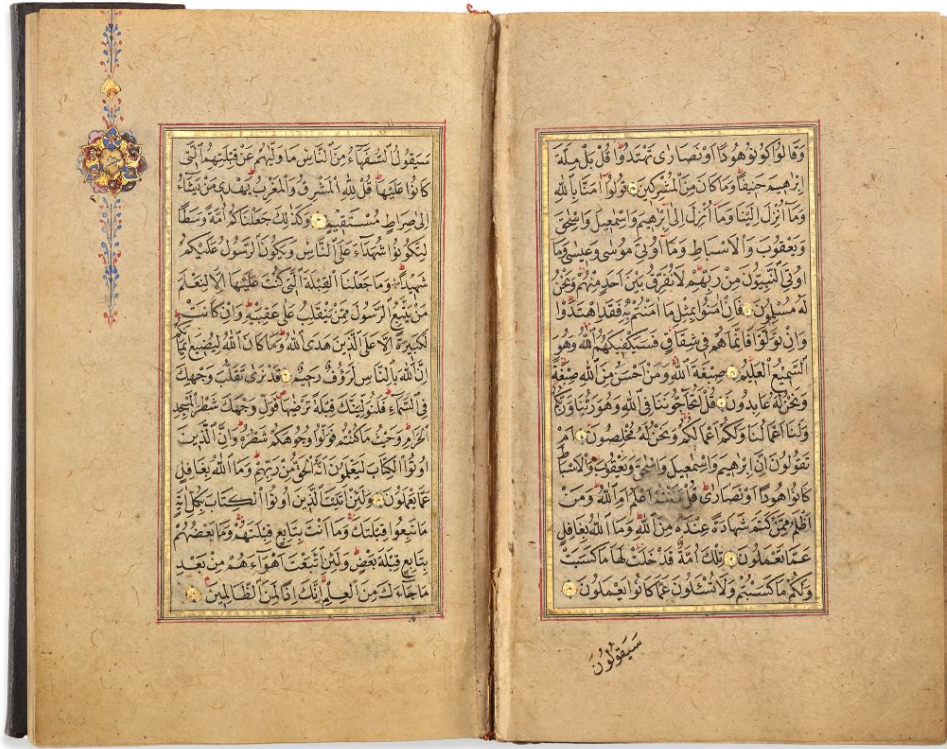 وَقَالُوا كُونُوا هُودًا اَوْ نَصَارٰى تَهْتَدُوا قُلْ بَلْ مِلَّةَ
اِبْرٰهِيمَ حَنِيفًا وَمَا كَانَ مِنَ الْمُشْرِكِينَ قُولُوا اٰمَنَّا بِاللّٰهِ
وَمَا اُنْزِلَ اِلَيْنَا وَمَا اُنْزِلَ اِلٰى اِبْرٰهِيمَ وَاِسْمٰعِيلَ وَاِسْحٰقَ
وَيَعْقُوبَ وَالْاَسْبَاطِ وَمَا اُوتِيَ مُوسٰى وَعِيسٰى وَمَا
اُوتِيَ النَّبِيُّونَ مِنْ رَبِّهِمْ لَا نُفَرِّقُ بَيْنَ اَحَدٍ مِنْهُمْ وَنَحْنُ
لَهُ مُسْلِمُونَ فَاِنْ اٰمَنُوا بِمِثْلِ مَا اٰمَنْتُمْ بِهِ فَقَدِ اهْتَدَوْا
وَاِنْ تَوَلَّوْا فَاِنَّمَا هُمْ فِي شِقَاقٍ فَسَيَكْفِيكَهُمُ اللّٰهُ وَهُوَ
السَّمِيعُ الْعَلِيمُ صِبْغَةَ اللّٰهِ وَمَنْ اَحْسَنُ مِنَ اللّٰهِ صِبْغَةً
وَنَحْنُ لَهُ عَابِدُونَ قُلْ اَتُحَاجُّونَنَا فِي اللّٰهِ وَهُوَ رَبُّنَا وَرَبُّكُمْ
وَلَنَا اَعْمَالُنَا وَلَكُمْ اَعْمَالُكُمْ وَنَحْنُ لَهُ مُخْلِصُونَ اَمْ
تَقُولُونَ اِنَّ اِبْرٰهِيمَ وَاِسْمٰعِيلَ وَاِسْحٰقَ وَيَعْقُوبَ وَالْاَسْبَاطَ
كَانُوا هُودًا اَوْ نَصَارٰى قُلْ ءَاَنْتُمْ اَعْلَمُ اَمِ اللّٰهُ وَمَنْ
اَظْلَمُ مِمَّنْ كَتَمَ شَهَادَةً عِنْدَهُ مِنَ اللّٰهِ وَمَا اللّٰهُ بِغَافِلٍ
عَمَّا تَعْمَلُونَ تِلْكَ اُمَّةٌ قَدْ خَلَتْ لَهَا مَا كَسَبَتْ
وَلَكُمْ مَا كَسَبْتُمْ وَلَا تُسْـَٔلُونَ عَمَّا كَانُوا يَعْمَلُونَ
سَيَقُولُونَ
سَيَقُولُ السُّفَهَاءُ مِنَ النَّاسِ مَا وَلّٰيهُمْ عَنْ قِبْلَتِهِمُ الَّتِي
كَانُوا عَلَيْهَا قُلْ لِلّٰهِ الْمَشْرِقُ وَالْمَغْرِبُ يَهْدِي مَنْ يَشَاءُ
اِلٰى صِرَاطٍ مُسْتَقِيمٍ وَكَذٰلِكَ جَعَلْنَاكُمْ اُمَّةً وَسَطًا
لِتَكُونُوا شُهَدَاءَ عَلَى النَّاسِ وَيَكُونَ الرَّسُولُ عَلَيْكُمْ
شَهِيدًا وَمَا جَعَلْنَا الْقِبْلَةَ الَّتِي كُنْتَ عَلَيْهَا اِلَّا لِنَعْلَمَ
مَنْ يَتَّبِعُ الرَّسُولَ مِمَّنْ يَنْقَلِبُ عَلٰى عَقِبَيْهِ وَاِنْ كَانَتْ
لَكَبِيرَةً اِلَّا عَلَى الَّذِينَ هَدَى اللّٰهُ وَمَا كَانَ اللّٰهُ لِيُضِيعَ اِيمَانَكُمْ
اِنَّ اللّٰهَ بِالنَّاسِ لَرَؤُفٌ رَحِيمٌ قَدْ نَرٰى تَقَلُّبَ وَجْهِكَ
فِي السَّمَاءِ فَلَنُوَلِّيَنَّكَ قِبْلَةً تَرْضٰيهَا فَوَلِّ وَجْهَكَ شَطْرَ الْمَسْجِدِ
الْحَرَامِ وَحَيْثُ مَا كُنْتُمْ فَوَلُّوا وُجُوهَكُمْ شَطْرَهُ وَاِنَّ الَّذِينَ
اُوتُوا الْكِتَابَ لَيَعْلَمُونَ اَنَّهُ الْحَقُّ مِنْ رَبِّهِمْ وَمَا اللّٰهُ بِغَافِلٍ
عَمَّا يَعْمَلُونَ وَلَئِنْ اَتَيْتَ الَّذِينَ اُوتُوا الْكِتَابَ بِكُلِّ اٰيَةٍ
مَا تَبِعُوا قِبْلَتَكَ وَمَا اَنْتَ بِتَابِعٍ قِبْلَتَهُمْ وَمَا بَعْضُهُمْ
بِتَابِعٍ قِبْلَةَ بَعْضٍ وَلَئِنِ اتَّبَعْتَ اَهْوَاءَهُمْ مِنْ بَعْدِ
مَا جَاءَكَ مِنَ الْعِلْمِ اِنَّكَ اِذًا لَمِنَ الظَّالِمِينَ